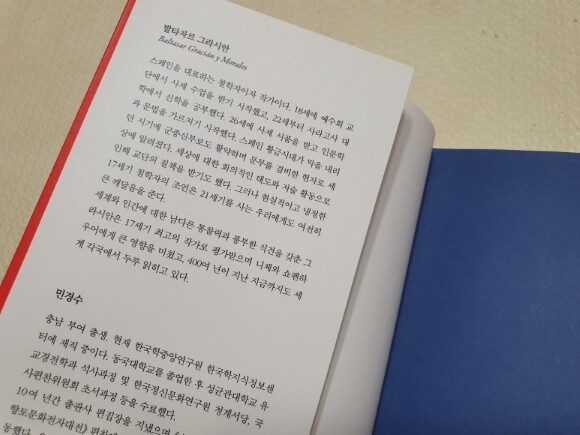 발타자르 그라시안
Baltasar Gracián y Morales
스페인을 대표하는 철학자이자 작가이다. 18세에 예수회 교
단에서 사제 수업을 받기 시작했고, 22세부터 사라고사 대
학에서 신학을 공부했다. 26세에 사제 서품을 받고 인문학
과 문법을 가르치기 시작했다. 스페인 황금시대가 막을 내리
던 시기에 군종신부로도 활약하며 문무를 겸비한 현자로 세
상에 알려졌다. 세상에 대한 회의적인 태도와 저술 활동으로
인해 교단의 질책을 받기도 했다. 그러나 현실적이고 냉정한
17세기 철학자의 조언은 21세기를 사는 우리에게도 여전히
큰 깨달음을 준다.
세계와 인간에 대한 남다른 통찰력과 풍부한 식견을 갖춘 그
라시안은 17세기 최고의 작가로 평가받으며 니체와 쇼펜하
우어에게 큰 영향을 미쳤고, 400여 년이 지난 지금까지도 세
계 각국에서 두루 읽히고 있다.
민경수
충남 부여 출생. 현재 한국학중앙연구원 한국학지식정보센
터에 재직 중이다. 동국대학교를 졸업한 후 성균관대학교 유
교경전학과 석사과정 및 한국정신문화연구원 청계서당, 국
사편찬위원회 초서과정 등을 수료했다.
10여 년간 출판사 편집장을 지냈으며
향토문화전자대전》 편찬에
동했다.